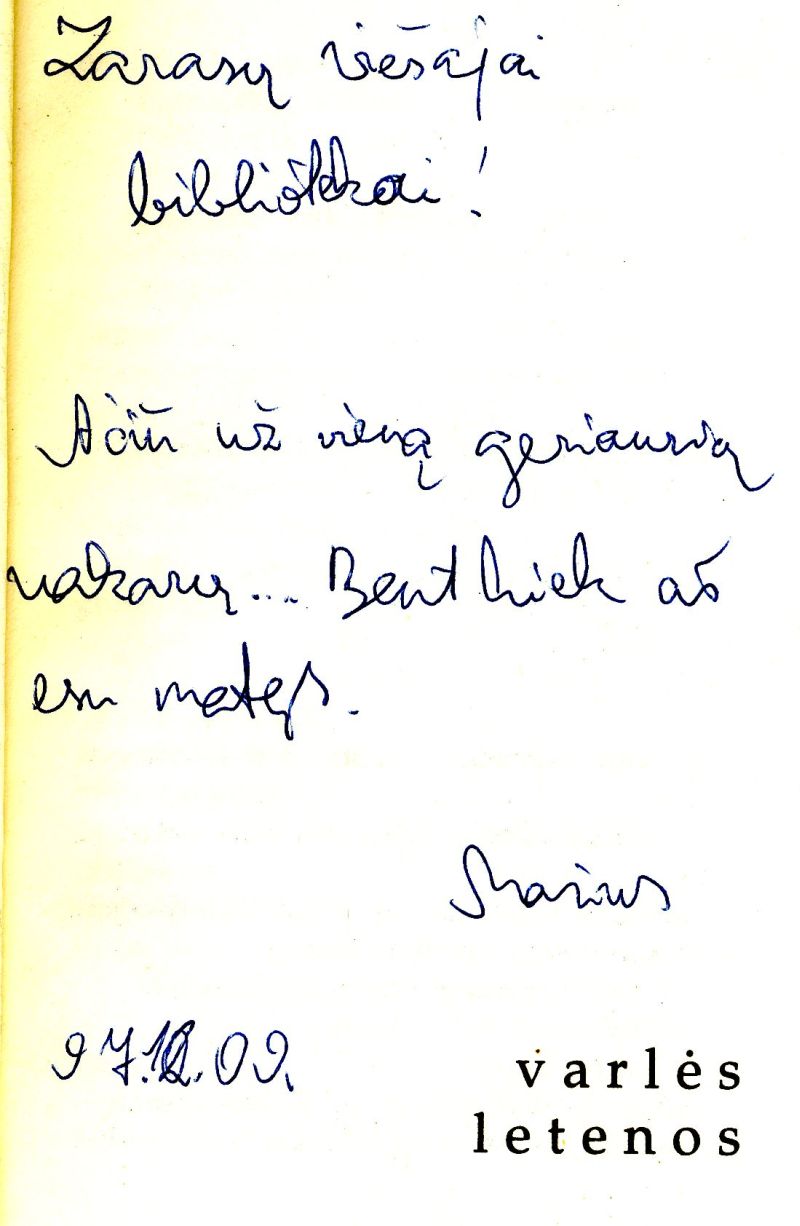 Zarasų viešajai
bibliotekai!
Ačiū už vieną geriausių
vakarų... Bent kiek aš
esu matęs.
Marius
97.12.09.
varlės
letenos